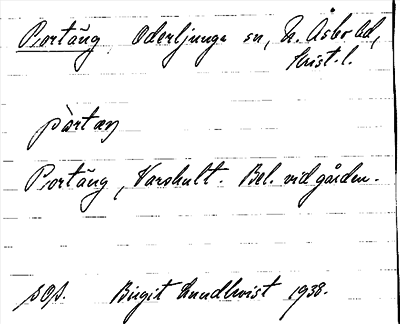 Portäng Oderljunga sn, N. Åsbo hd,
Krist. l.
pòrtæŋ
Portäng, Varshult. Bel. vid gården.
sOp. Birgit Lundkvist 1938.